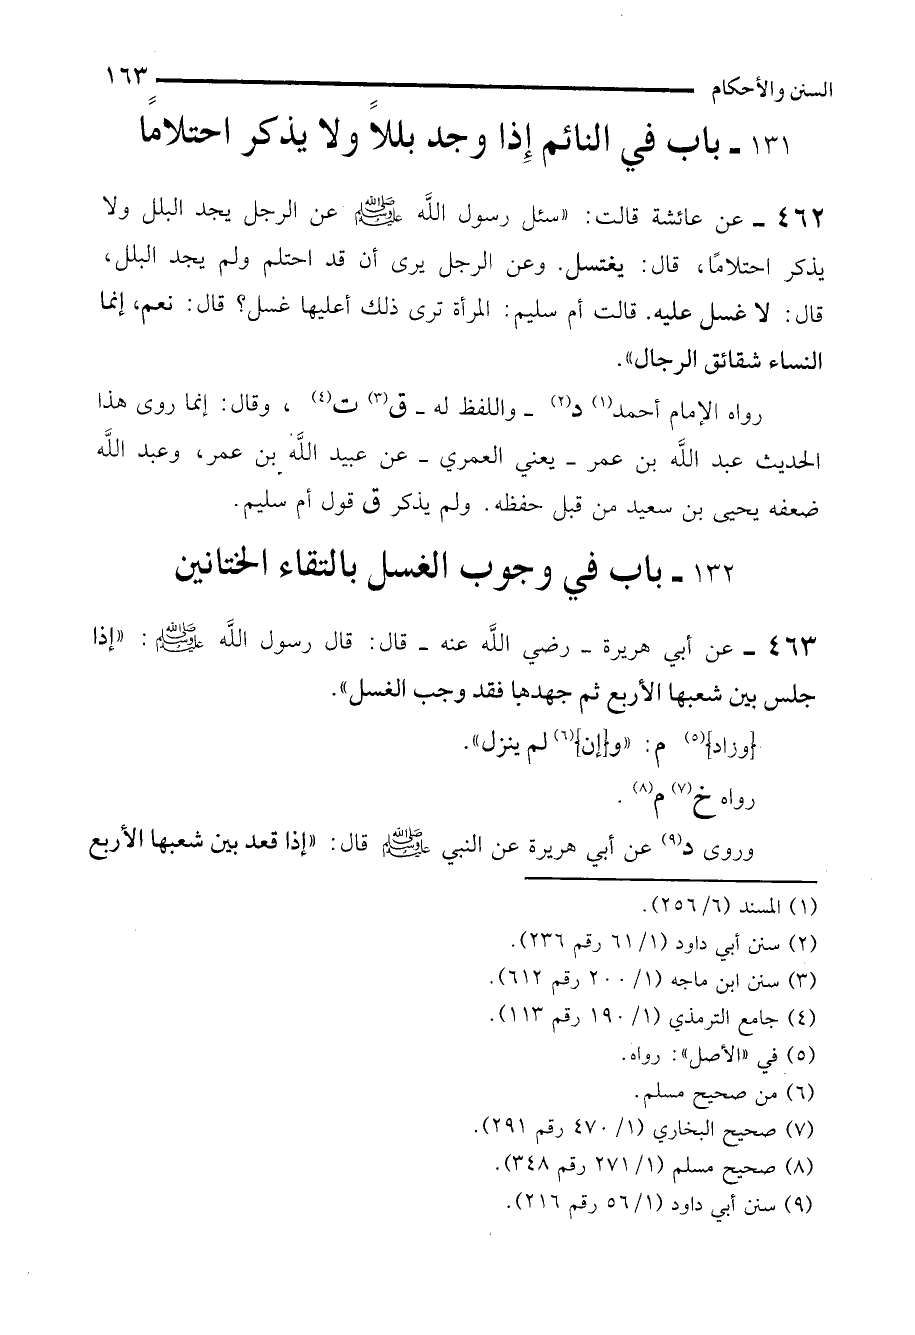 السنن والأحكام ١٦٣
١٣١ ـ باب في النائم إِذا وجد بللاً ولا يذكر احتلاماً
٤٦٢ ـ عن عائشة قالت: «سئل رسول اللَّه ﷺ عن الرجل يجد البلل ولا
يذكر احتلامًا، قال: يغتسل. وعن الرجل يرى أن قد احتلم ولم يجد البلل،
قال: لا غسل عليه. قالت أم سليم: المرأة ترى ذلك أعليها غسل؟ قال: نعم، إنما
النساء شقائق الرجال».
رواه الإمام أحمد(١) د(٢) ـ واللفظ له ـ ق(٣) ت(٤) ، وقال: إنما روى هذا
الحديث عبد اللَّه بن عمر ـ يعني العمري ـ عن عبيد اللَّه بن عمر، وعبد اللَّه
ضعفه يحيى بن سعيد من قبل حفظه. ولم يذكر ق قول أم سليم.
١٣٢ ـ باب في وجوب الغسل بالتقاء الختانين
٤٦٣ ـ عن أبي هريرة ـ رضي اللَّه عنه ـ قال: قال رسول اللَّه ﷺ: «إذا
جلس بين شعبها الأربع ثم جهدها فقد وجب الغسل».
{وزاد}(٥) م: «و{إن}(٦) لم ينزل».
رواه خ(٧) م(٨) .
وروى د(٩) عن أبي هريرة عن النبي ﷺ قال: «إذا قعد بين شعبها الأربع
(١) المسند (٦/ ٢٥٦).
(٢) سنن أبي داود (١/ ٦١ رقم ٢٣٦).
(٣) سنن ابن ماجه (١/ ٢٠٠ رقم ٦١٢).
(٤) جامع الترمذي (١/ ١٩٠ رقم ١١٣).
(٥) في «الأصل»: رواه.
(٦) من صحيح مسلم.
(٧) صحيح البخاري (١/ ٤٧٠ رقم ٢٩١).
(٨) صحيح مسلم (١/ ٢٧١ رقم ٣٤٨).
(٩) سنن أبي داود (١/ ٥٦ رقم ٢١٦).